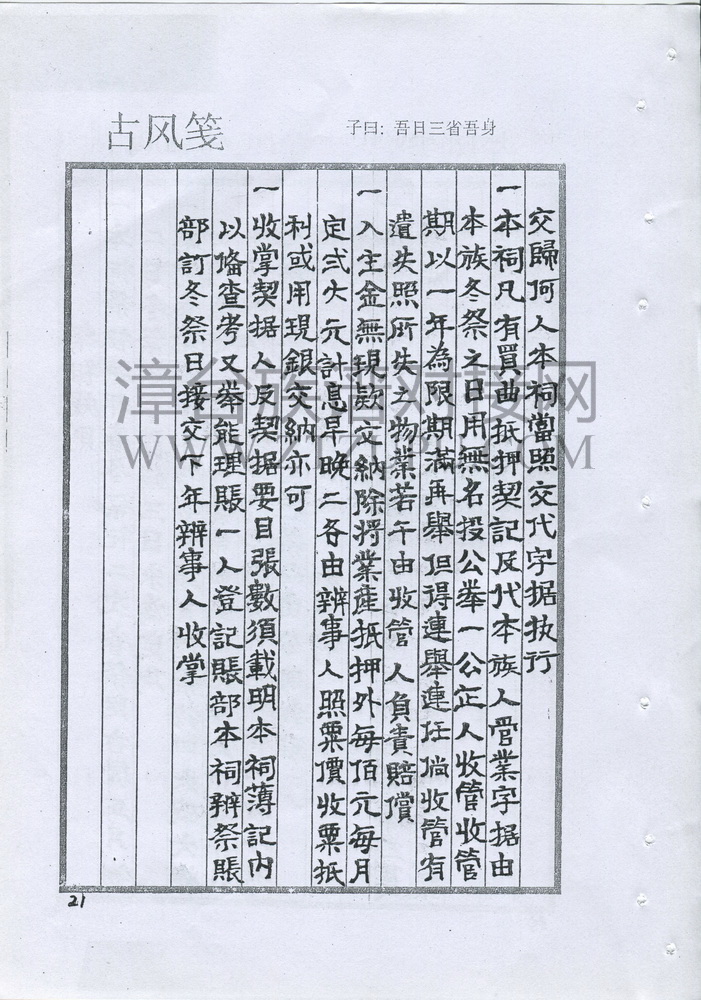 古风笺
子曰：吾日三省吾身
交歸何人本祠當照交代字据执行
一本祠凡有買曲抵押契記及代本族人管業字据由
本族冬祭之日用無名投公举一公正人收管收管
期以一年為限期滿再舉但得連舉連任倘收管有
遺失照所失之物業若干由收管人負責賠償
一入主金無現款交納除將業產抵押外每佰元每月
定弍大元計息早晚二各由辨事人照粟價收粟抵
利或用現銀交納亦可
一收掌契据人及契据要目張數須載明本祠薄記内
以俻查考又举能理賬一人登記賬部本祠辨祭賬
部訂冬祭日接交下年辨事人收掌
漳台族谱对接网
21